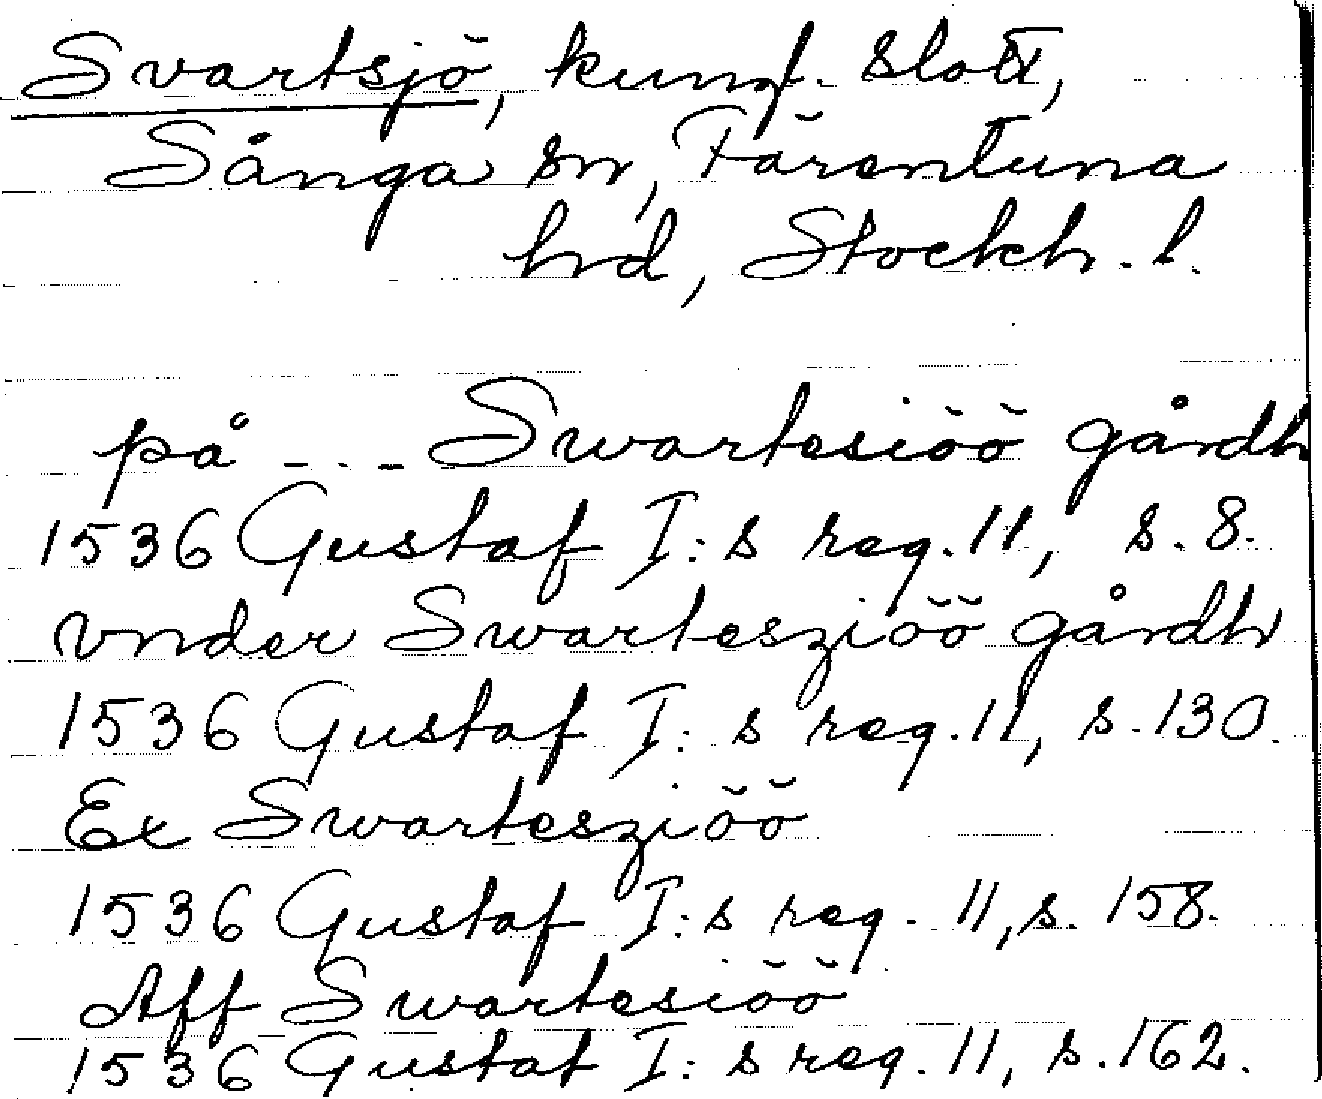 Svartsjö, kungl. slott,
Sånga sn, Färentuna
hrd, Stockh. l.
på - - - Swartesiöö gårdh
1536 Gustaf I:s reg. 11, s. 8.
vnder Swartesziöö gårdh
1536 Gustaf I:s reg. 11, s. 130.
Ex Swartesziöö
1536 Gustaf I:s reg. 11, s. 158.
Aff Swartesiöö
1536 Gustaf I:s reg. 11, s. 162.